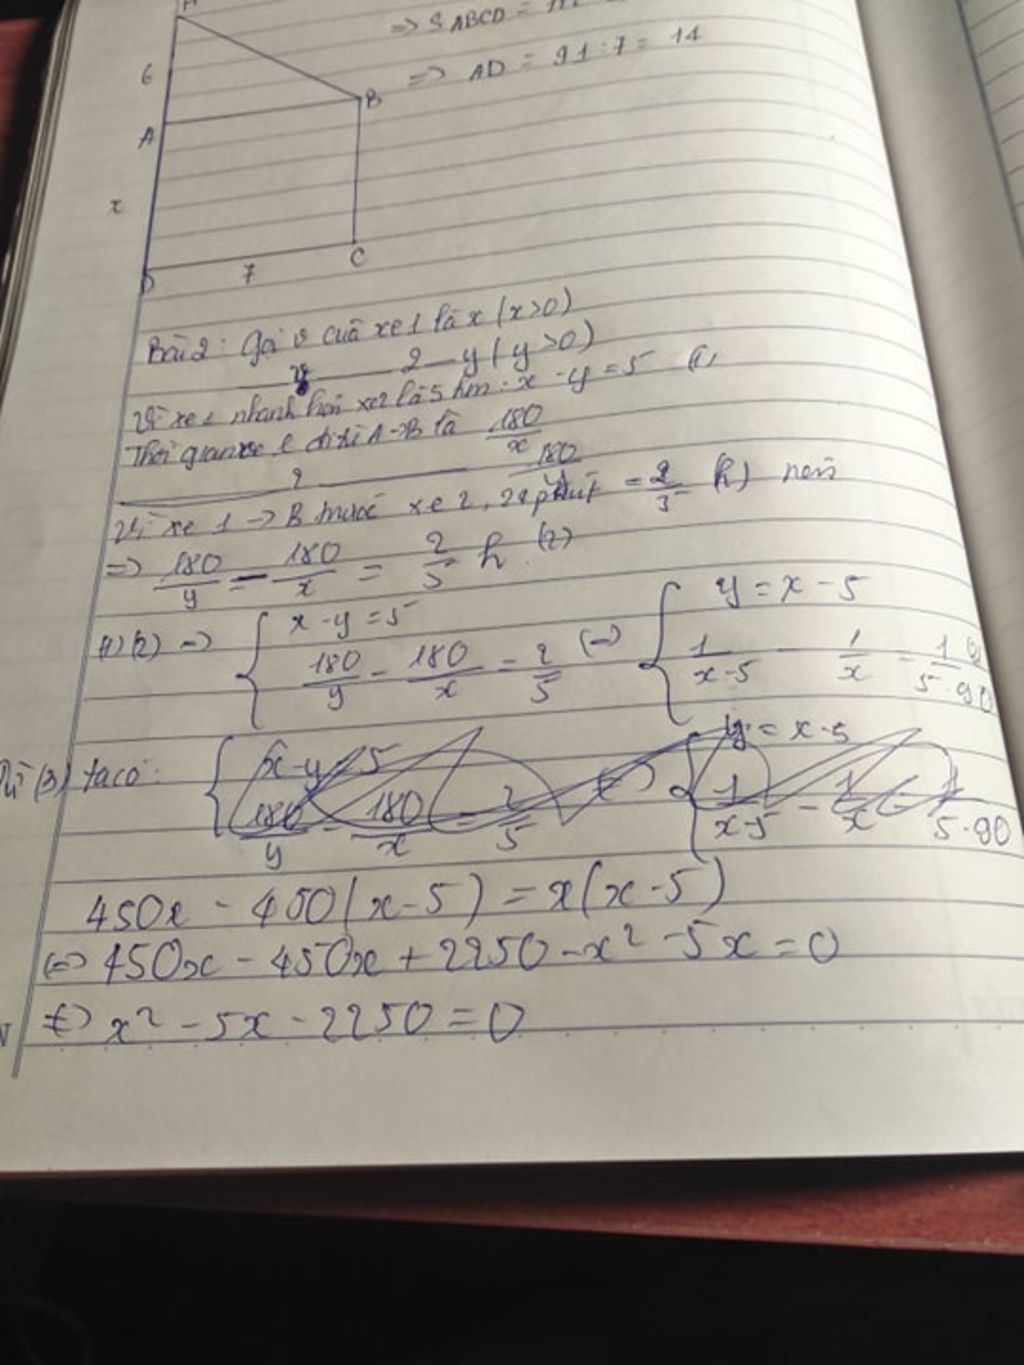 => S ABCD =
=> AD = 91 : 7 = 14
6
B
A
x
7
C
D
Bài 2: Gọi v của xe 1 là x (x>0)
2 y (y>0)
Vì xe 1 nhanh hơn xe 2 là 5 km: x - y = 5 (1)
Thời gian xe 1 đi từ A->B là 180/x
2 180
Vì xe 1 -> B trước xe 2, 24 phút = 2/5 (h) nên
=> 180/y - 180/x = 2/5 h (2)
(1)(2) => { x - y = 5
180/y - 180/x = 2/5 (=) { y = x - 5
1/(x-5) - 1/x = 1/(5.90)
Từ (3) ta có: { x - y = 5
180/y - 180/x = 2/5 (=) { y = x - 5
1/(x-5) - 1/x = 1/(5.90)
450x - 450(x - 5) = x(x - 5)
(=) 450x - 450x + 2250 - x² - 5x = 0
(=) x² - 5x - 2250 = 0